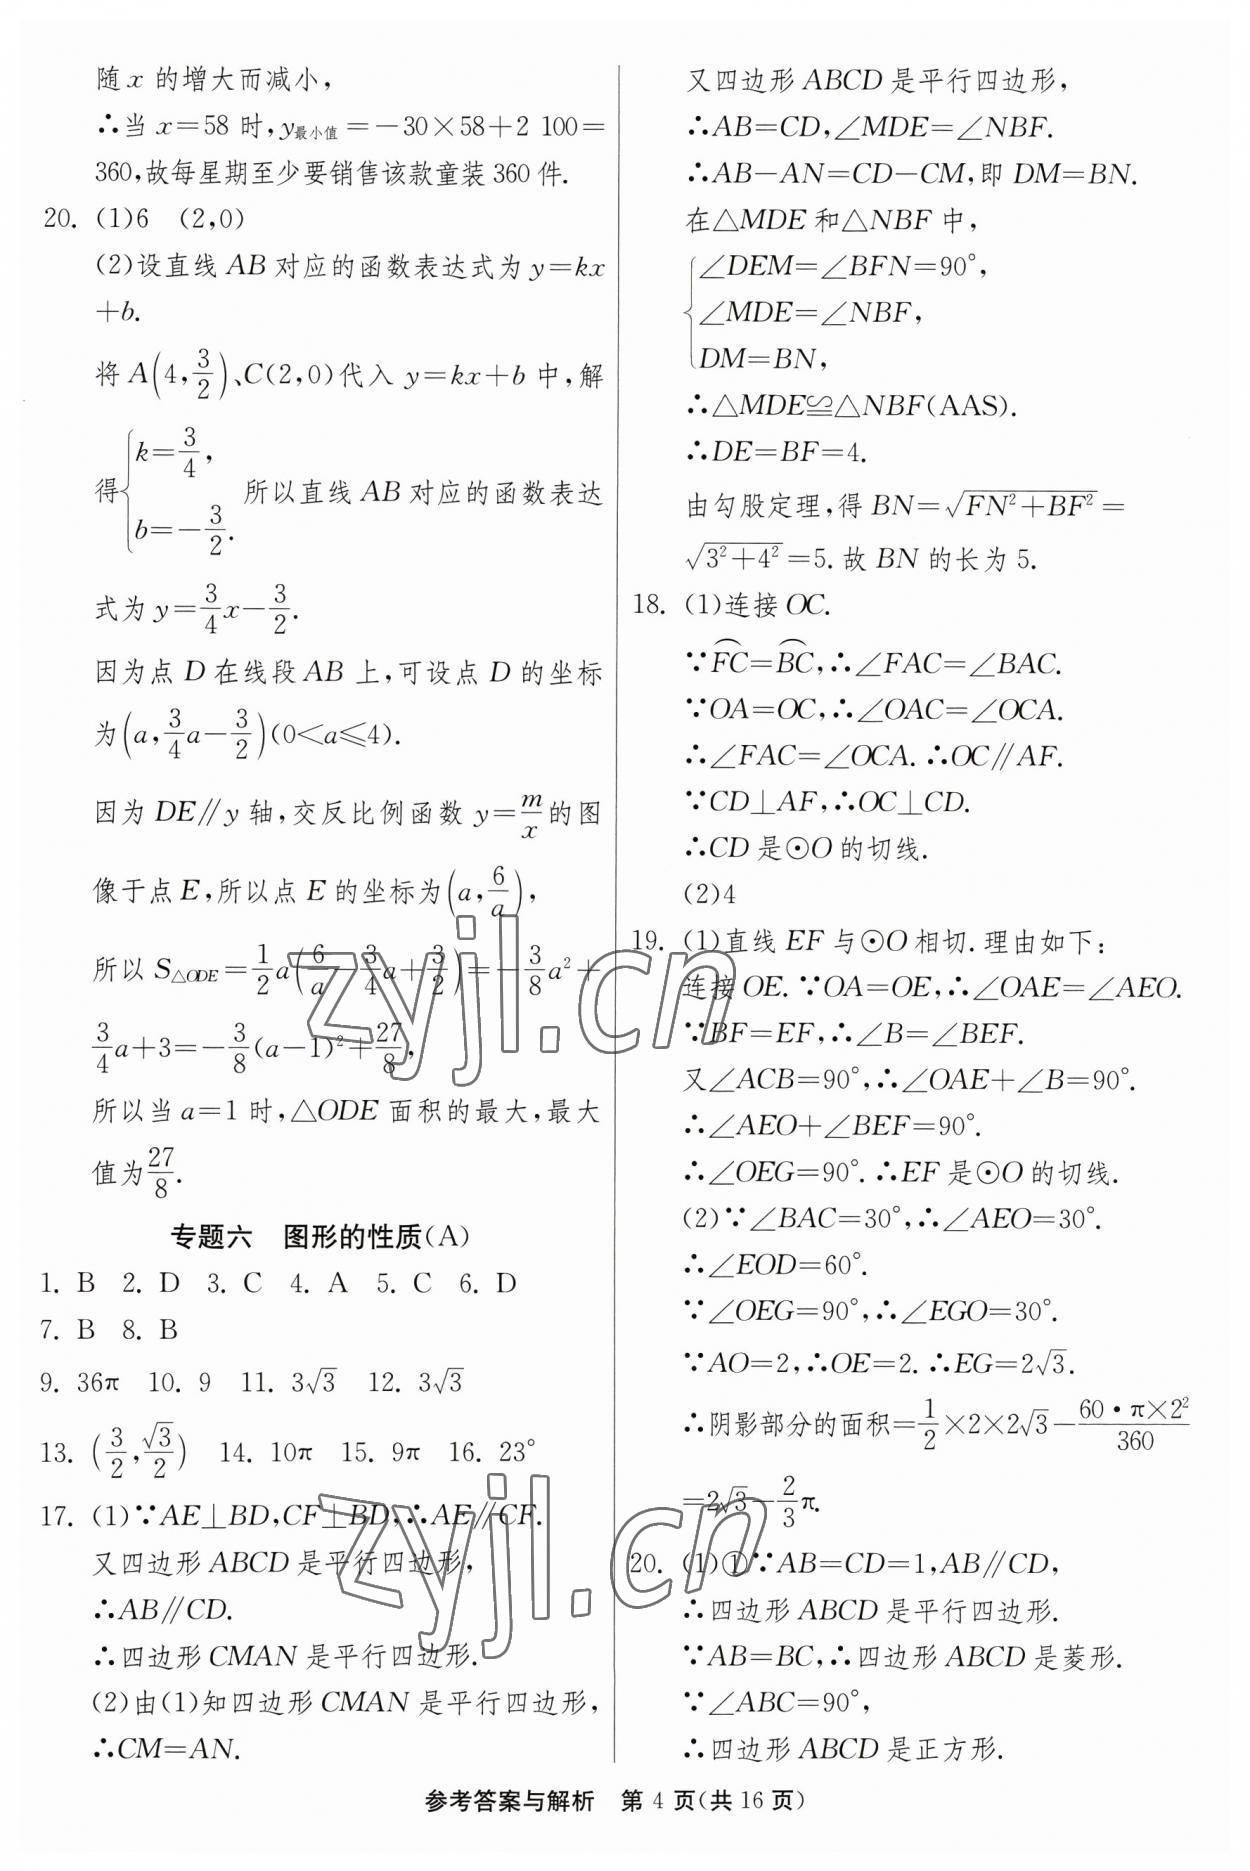 随 x 的增大而减小，
∴当 x=58 时，y最小值=－30×58+2 100=
360，故每星期至少要销售该款童装 360 件.
20. (1)6 (2,0)
(2)设直线 AB 对应的函数表达式为 y=kx
+b.
将 A(4, 3/2)、C(2,0)代入 y=kx+b 中，解
得{k=3/4, b=－3/2. 所以直线 AB 对应的函数表达
式为 y=3/4x－3/2.
因为点 D 在线段 AB 上，可设点 D 的坐标
为(a, 3/4a－3/2)(0<a≤4).
因为 DE∥y 轴，交反比例函数 y=m/x 的图
像于点 E，所以点 E 的坐标为(a, 6/a)，
所以 S△ODE=1/2a(6/a－3/4a+3/2)=－3/8a²+
3/4a+3=－3/8(a－1)²+27/8，
所以当 a=1 时，△ODE 面积的最大，最大
值为27/8.
专题六 图形的性质(A)
1. B 2. D 3. C 4. A 5. C 6. D
7. B 8. B
9. 36π 10. 9 11. 3√3 12. 3√3
13. (3/2, √3/2) 14. 10π 15. 9π 16. 23°
17. (1)∵AE⊥BD,CF⊥BD,∴AE∥CF.
又四边形 ABCD 是平行四边形，
∴AB∥CD.
∴四边形 CMAN 是平行四边形.
(2)由(1)知四边形 CMAN 是平行四边形，
∴CM=AN.
又四边形 ABCD 是平行四边形，
∴AB=CD,∠MDE=∠NBF.
∴AB－AN=CD－CM,即 DM=BN.
在△MDE 和△NBF 中，
{∠DEM=∠BFN=90°,
∠MDE=∠NBF,
DM=BN,
∴△MDE≌△NBF(AAS).
∴DE=BF=4.
由勾股定理，得 BN=√(FN²+BF²)=
√(3²+4²)=5. 故 BN 的长为 5.
18. (1)连接 OC.
∵⌒FC=⌒BC,∴∠FAC=∠BAC.
∵OA=OC,∴∠OAC=∠OCA.
∴∠FAC=∠OCA. ∴OC∥AF.
∵CD⊥AF,∴OC⊥CD.
∴CD 是⊙O 的切线.
(2)4
19. (1)直线 EF 与⊙O 相切. 理由如下：
连接 OE. ∵OA=OE,∴∠OAE=∠AEO.
∵BF=EF,∴∠B=∠BEF.
又∠ACB=90°,∴∠OAE+∠B=90°.
∴∠AEO+∠BEF=90°.
∴∠OEG=90°. ∴EF 是⊙O 的切线.
(2)∵∠BAC=30°,∴∠AEO=30°.
∴∠EOD=60°.
∵∠OEG=90°,∴∠EGO=30°.
∵AO=2,∴OE=2. ∴EG=2√3.
∴阴影部分的面积=1/2×2×2√3－60·π×2²/360
=2√3－2/3π.
20. (1)①∵AB=CD=1,AB∥CD,
∴四边形 ABCD 是平行四边形.
∵AB=BC,∴四边形 ABCD 是菱形.
∵∠ABC=90°,
∴四边形 ABCD 是正方形.
参考答案与解析 第 4 页(共 16 页)
zyjl.cn
zyjl.cn